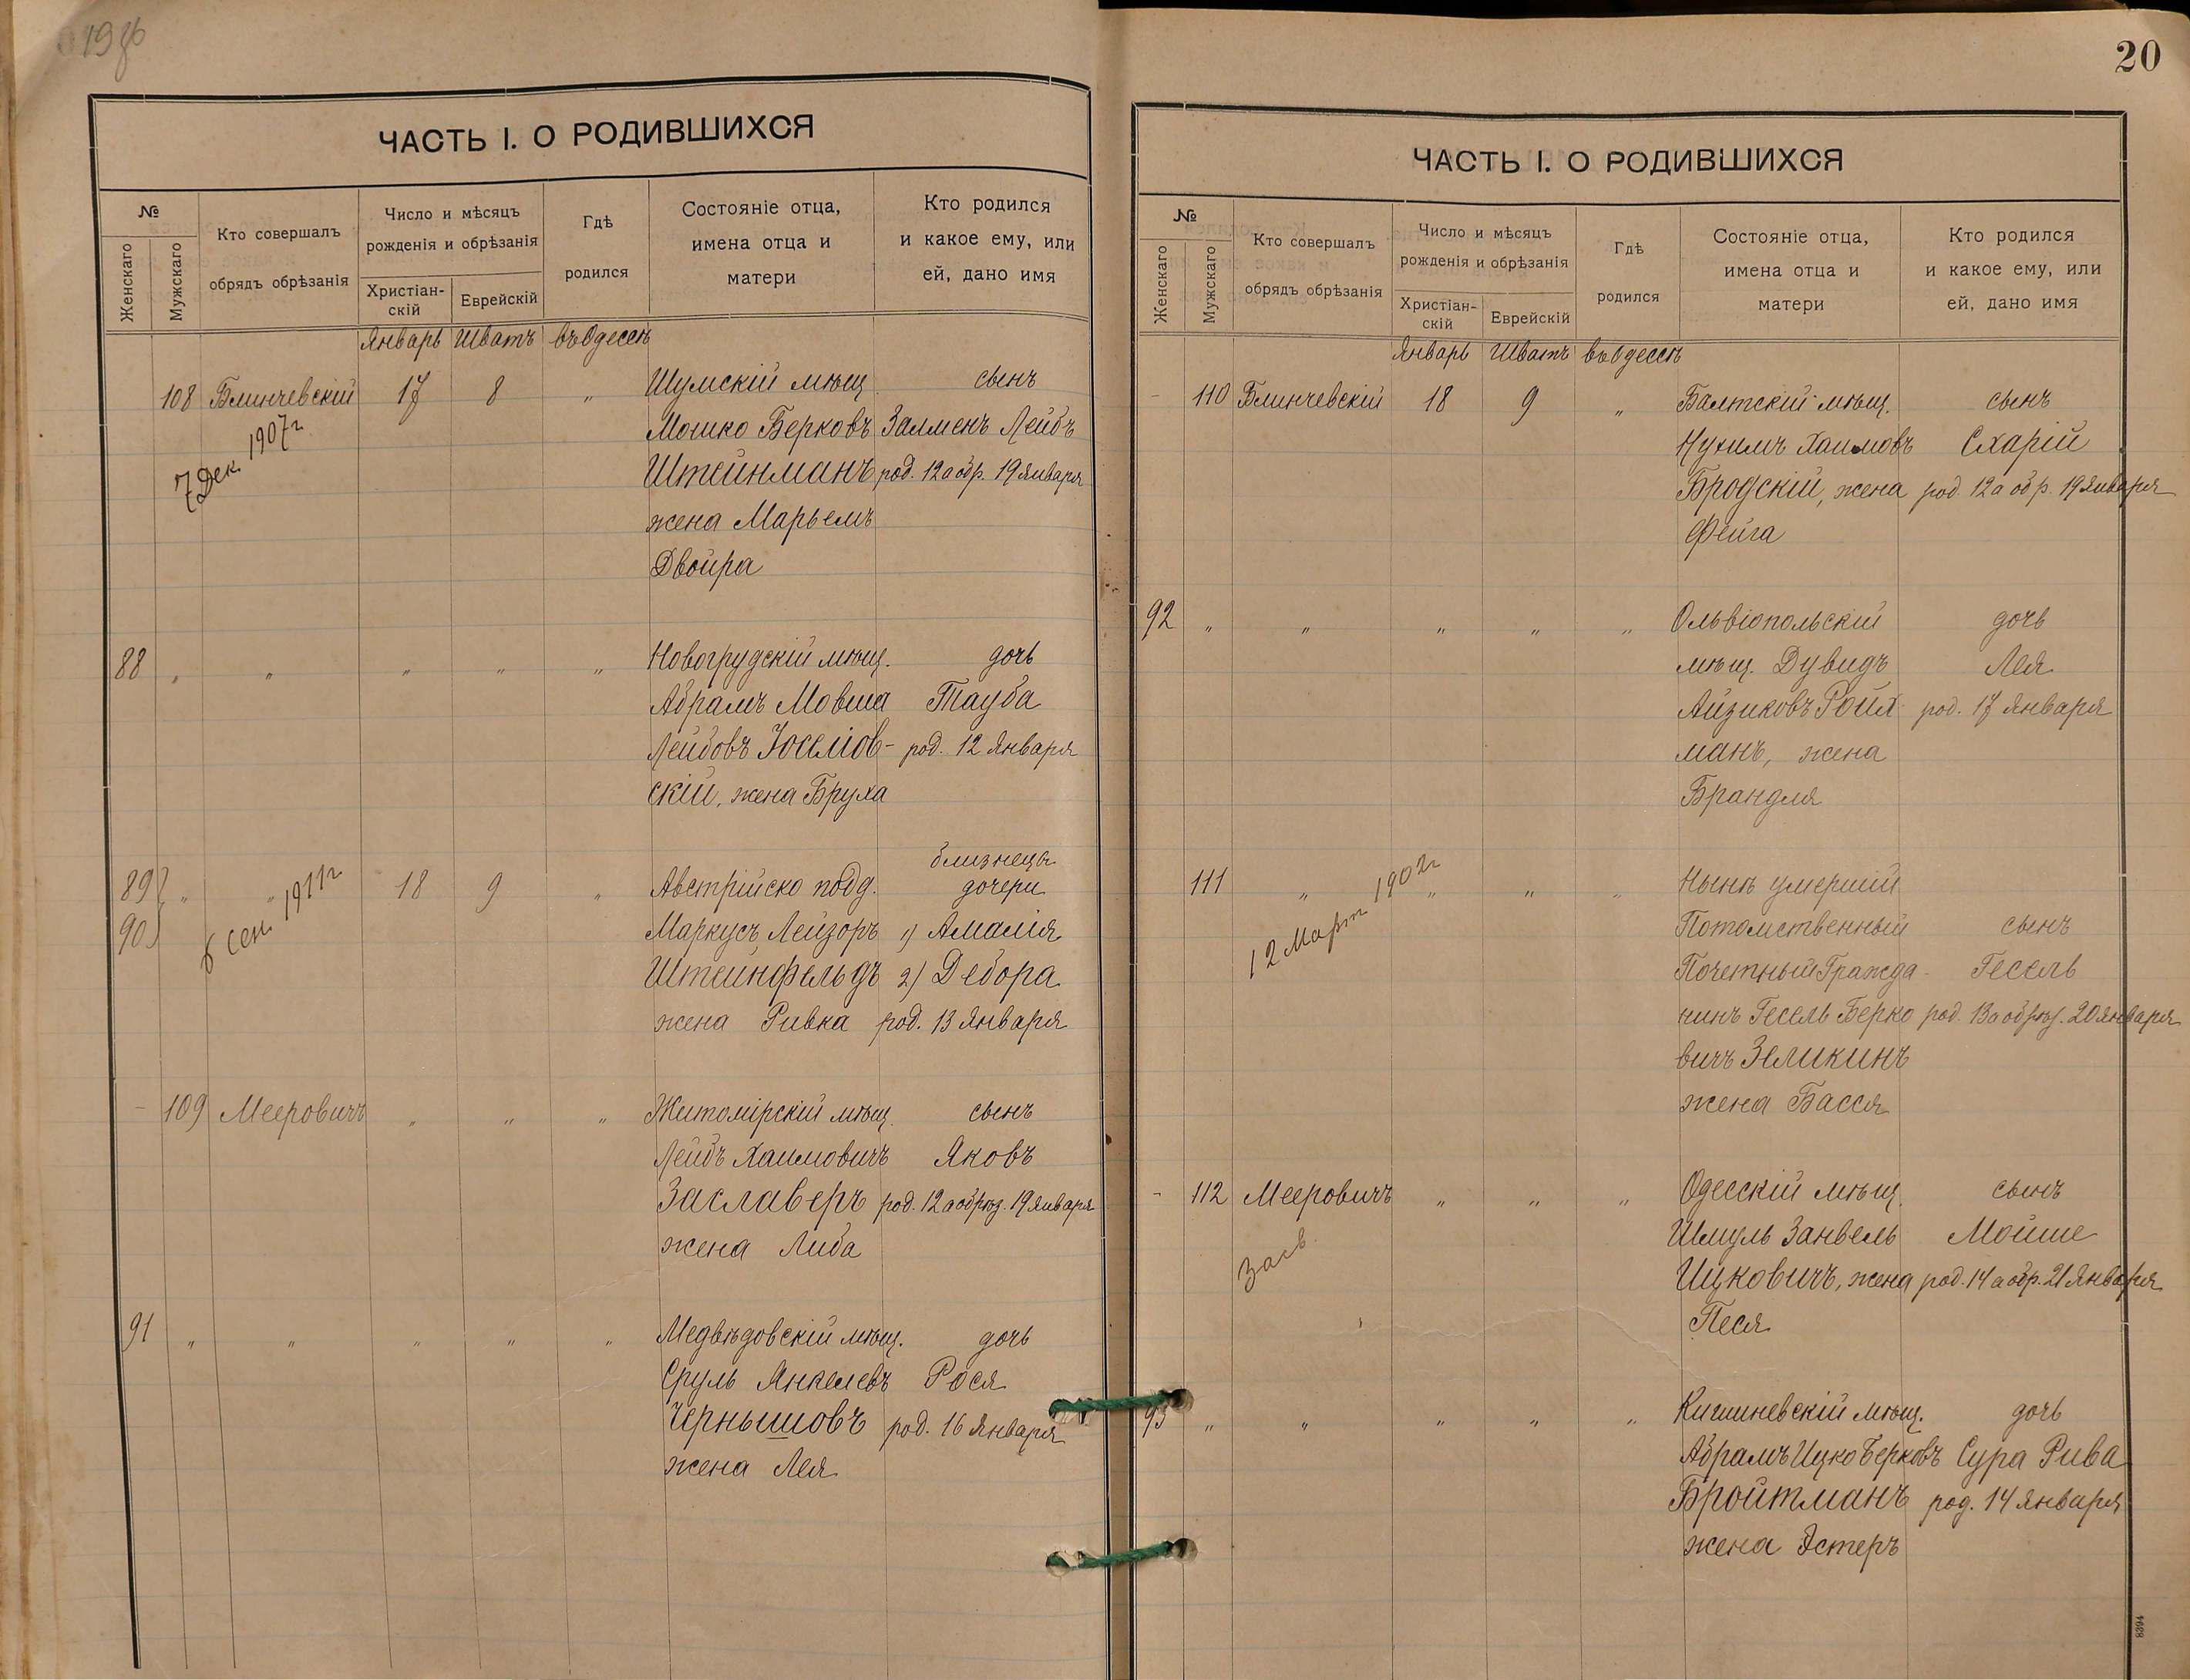 19об
ЧАСТЬ I. О РОДИВШИХСЯ
№
Женскаго
Мужскаго
Кто совершалъ
обрядъ обрѣзанія
Число и мѣсяцъ
рожденія и обрѣзанія
Христіан-
скій
Еврейскій
Гдѣ
родился
Состояніе отца,
имена отца и
матери
Кто родился
и какое ему, или
ей, дано имя
Январь Шватъ въ Одессѣ
108 Блинчевскій 17 8 „ Шумскій мѣщ. сынъ
7 Дек. 1907 г
Мошко Берковъ Залменъ Лейбъ
Штейнманъ род. 12 а обр. 19 января
жена Марьемъ
Двойра
88 „ „ „ „ „ Новогрудскій мѣщ. дочь
Абрамъ Мовша Тауба
Лейбовъ Іоселіов- род. 12 Января
скій, жена Бруха
близнеца
89 „ „ 18 9 „ Австрійско подд. дочери
90
6 сен. 1911 г
Маркусъ Лейзоръ 1) Амалія
Штейнфельдъ 2) Дебора
жена Ривка род. 13 Января
- 109 Мееровичъ „ „ „ Житомірскій мѣщ. сынъ
Лейбъ Хаимовичъ Яковъ
Заславеръ род. 12 а обрѣз. 19 Января
жена Либа
91 „ „ „ „ „ Медвѣдовскій мѣщ. дочь
Сруль Янкелевъ Рося
Чернышовъ род. 16 Января
жена Лея
20
ЧАСТЬ I. О РОДИВШИХСЯ
№
Женскаго
Мужскаго
Кто совершалъ
обрядъ обрѣзанія
Число и мѣсяцъ
рожденія и обрѣзанія
Христіан-
скій
Еврейскій
Гдѣ
родился
Состояніе отца,
имена отца и
матери
Кто родился
и какое ему, или
ей, дано имя
Январь Шватъ въ Одессѣ
- 110 Блинчевскій 18 9 „ Балтскій мѣщ. сынъ
Нухимъ Хаимовъ Схарій
Бродскій, жена род. 12 а обр. 19 Января
Фейга
92 „ „ „ „ „ Ольвіопольскій дочь
мѣщ. Дувидъ Лея
Айзиковъ Ройх род. 17 Января
манъ, жена
Брандля
111 „ „ „ „ Нынѣ умершій
12 Март 1902 г
Потомственный сынъ
Почетный Гражда- Гесель
нинъ Гесель Берко род. 13 а обрѣз. 20 января
вичъ Зеликинъ
жена Бася
- 112 Мееровичъ „ „ „ Одесскій мѣщ. сынъ
Шмуль Занвель Мойше
Ицковичъ, жена род. 14 а обр. 21 Января
Песя
93 „ „ „ „ „ Кишиневскій мѣщ. дочь
Абрамъ Ицко Берковъ Сура Рива
Бройтманъ род. 14 января
жена Эстеръ
8394